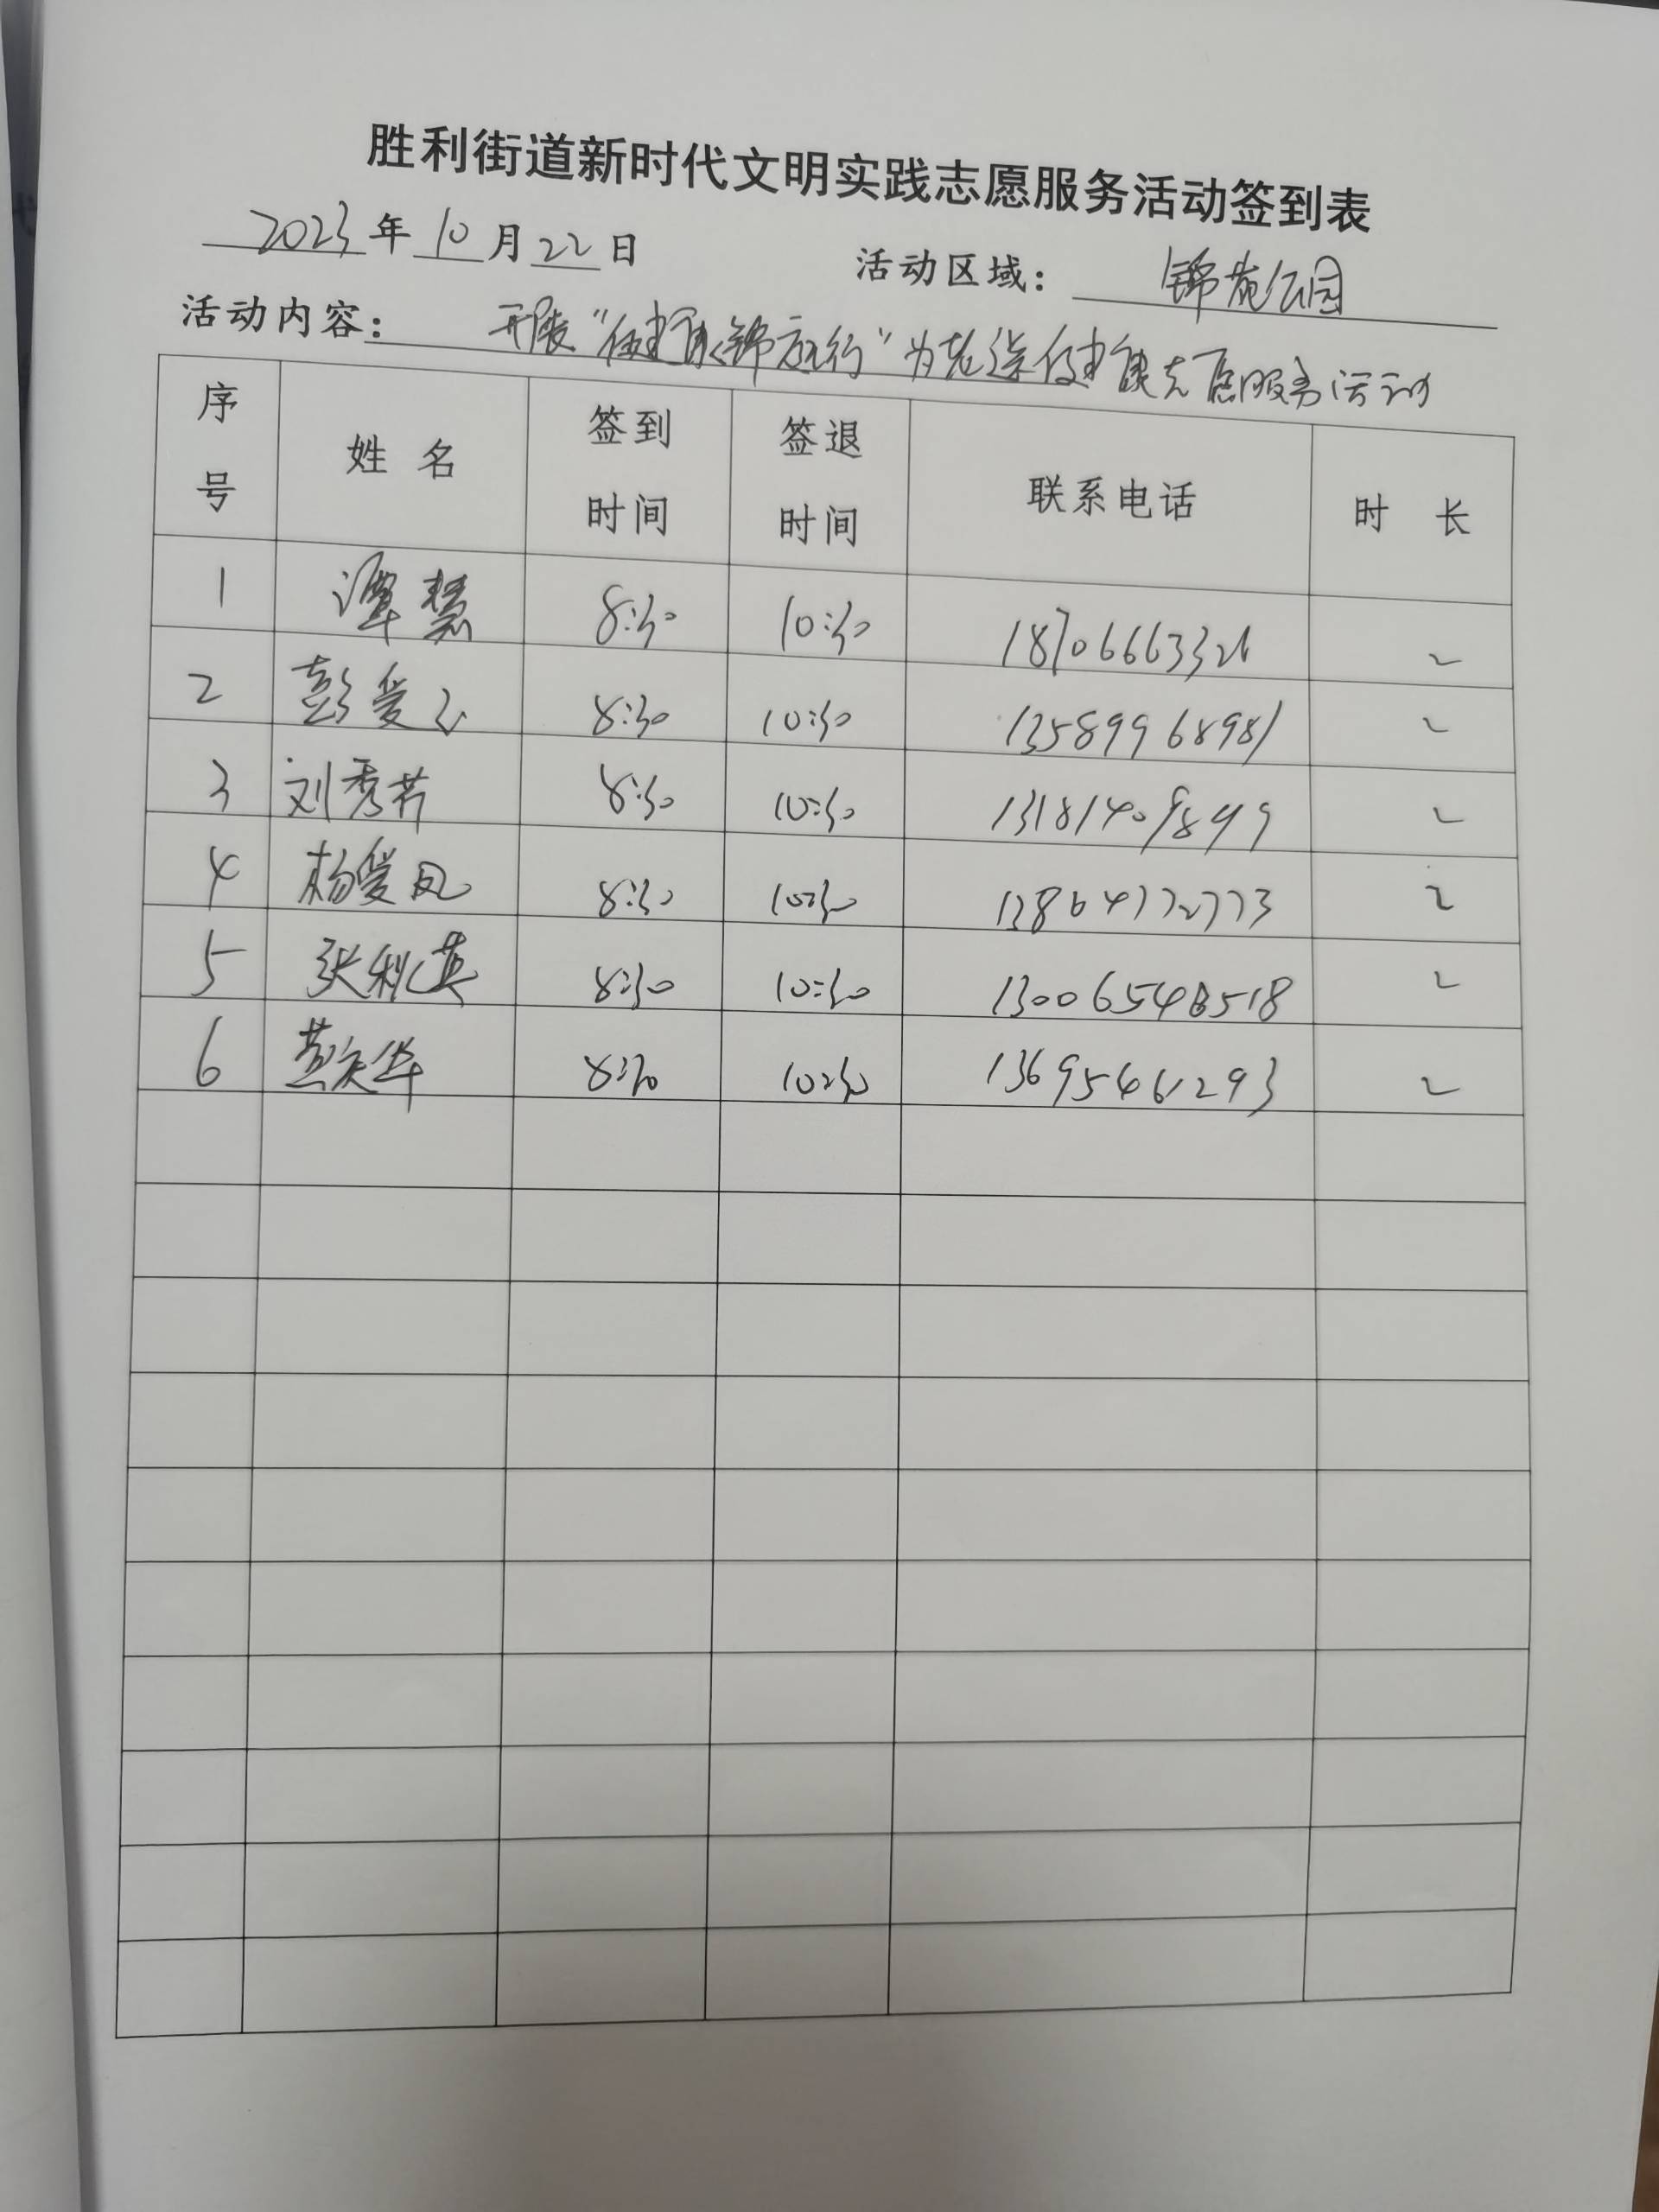 胜利街道新时代文明实践志愿服务活动签到表
2023年10月22日 活动区域：锦苑公园
活动内容：开展“健康锦庭行”为老送健康志愿服务活动
序号 姓名 签到时间 签退时间 联系电话 时长
1 谭慧 8:30 10:30 18706663326 2
2 彭爱 8:30 10:30 13589968981 2
3 刘秀芳 8:30 10:30 13181409849 2
4 杨爱凤 8:30 10:30 13864772773 2
5 张秋英 8:30 10:30 13006548518 2
6 燕庆华 8:30 10:30 13695461293 2